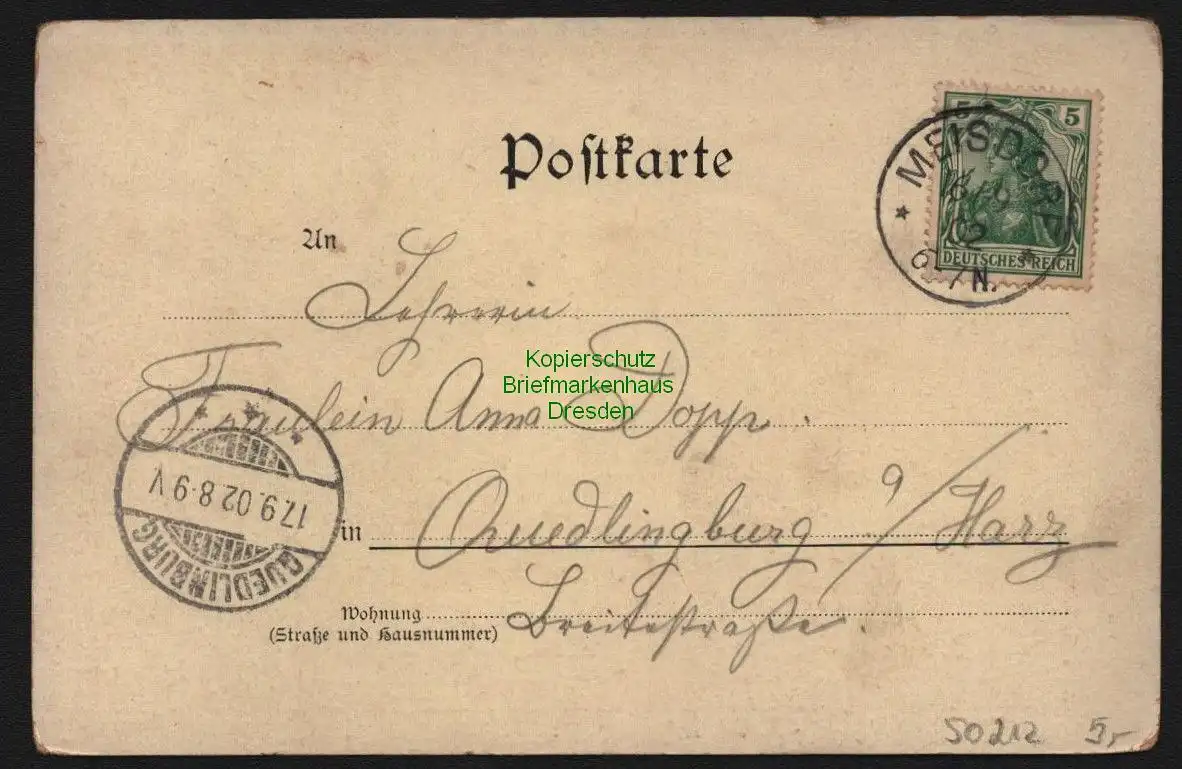 Postkarte
5 5
DEUTSCHES REICH
* MEISDORF *
16/9
02
6-7N.
An Lehrerin
Kopierschutz
Briefmarkenhaus
Dresden
Fräulein Anna Dopp
in Quedlingburg a/Harz
17.9.02 8-9 V
QUEDLINBURG
Wohnung Breitestraße.
(Straße und Hausnummer)
50212 5,-